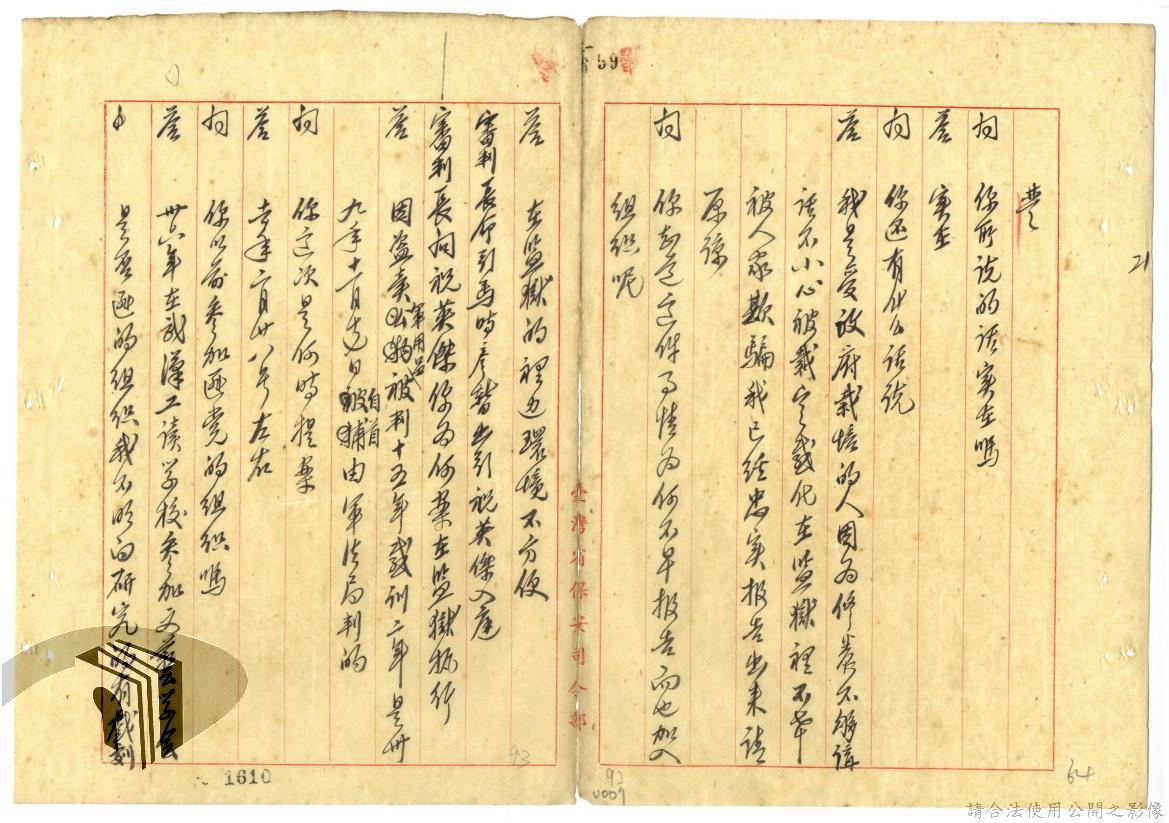 59
21
豊
問 你所說的話實在嗎
答 實在
問 你還有什么話說
答 我是受政府栽培的人因為修養不夠講
話不小心被裁定感化在監獄裡不幸
被人家欺騙我已經忠實报告出来請
原諒
問 你知道這件事情為何不早报告而也加入
組织呢
臺灣省保安司令部
答 在监獄的裡边環境不方便
審判長命引馬時彥暫出引祝英傑入庭
審判長問祝英傑你為何案在监獄执行
答 因盜卖軍用品被判十五年感训二年是卅
九年十一月 日自首由軍法局判的
問 你這次是何時提案
答 去年二月廿八号左右
問 你以前參加匪党的组织嗎
答 卅六年在武漢工读学校参加文艺学会
是否匪的组织我不明白研究 有戲剧
1610
93
92
0007
64
請合法使用公開之影像